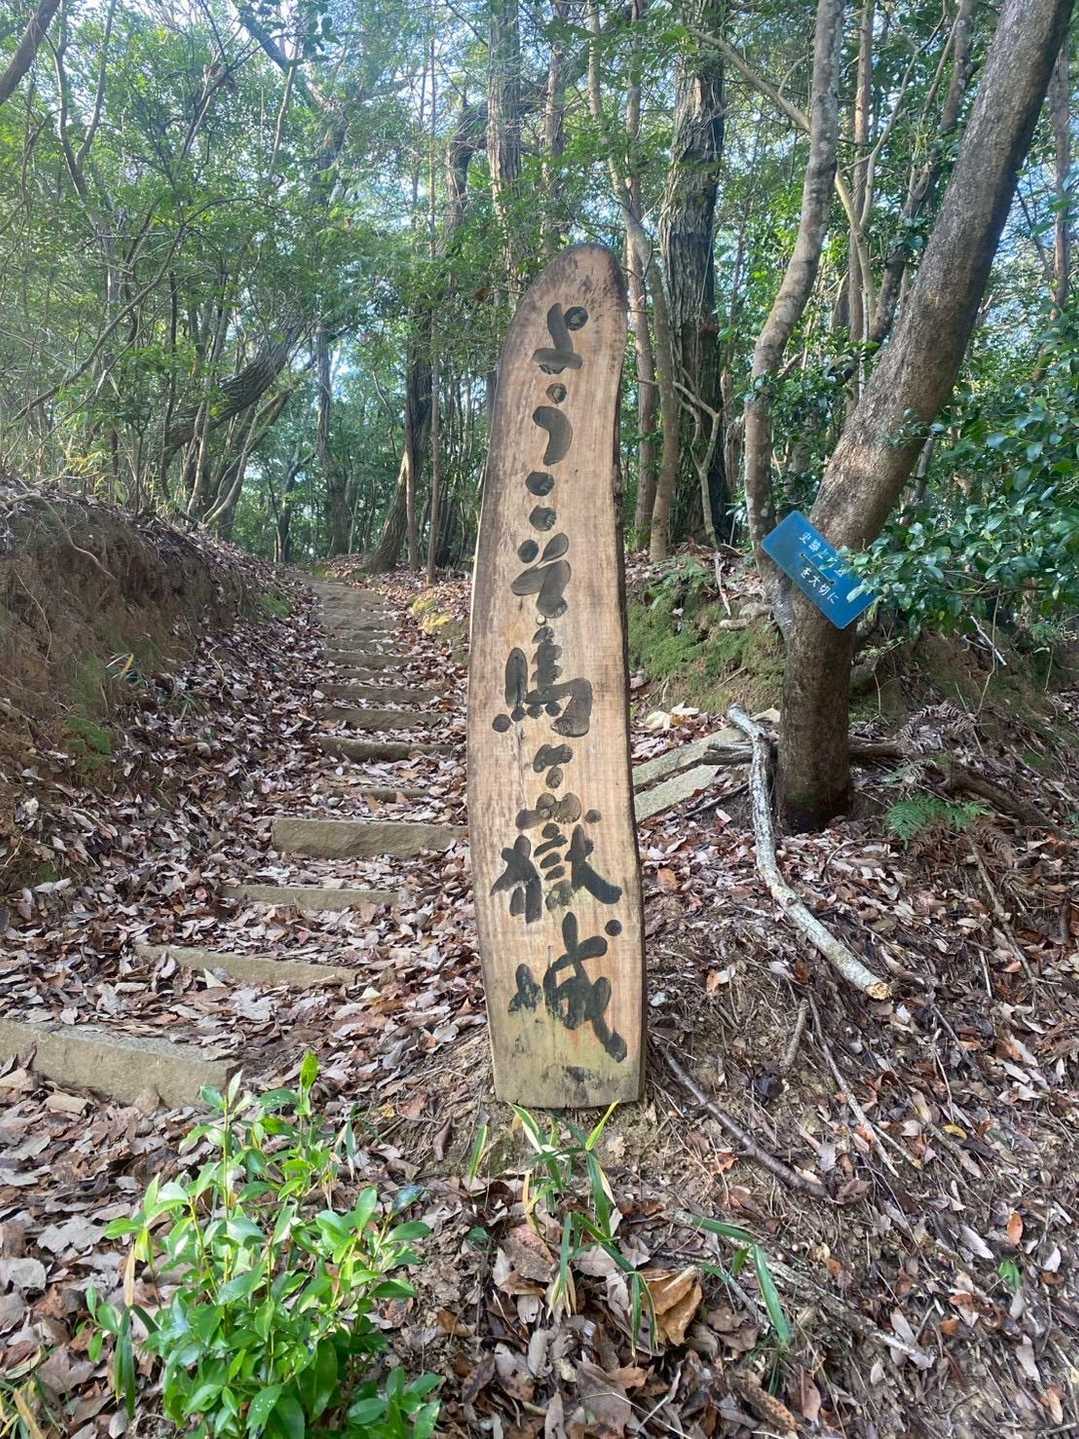 ようこそ馬ヶ嶽城
史跡と
を大切に